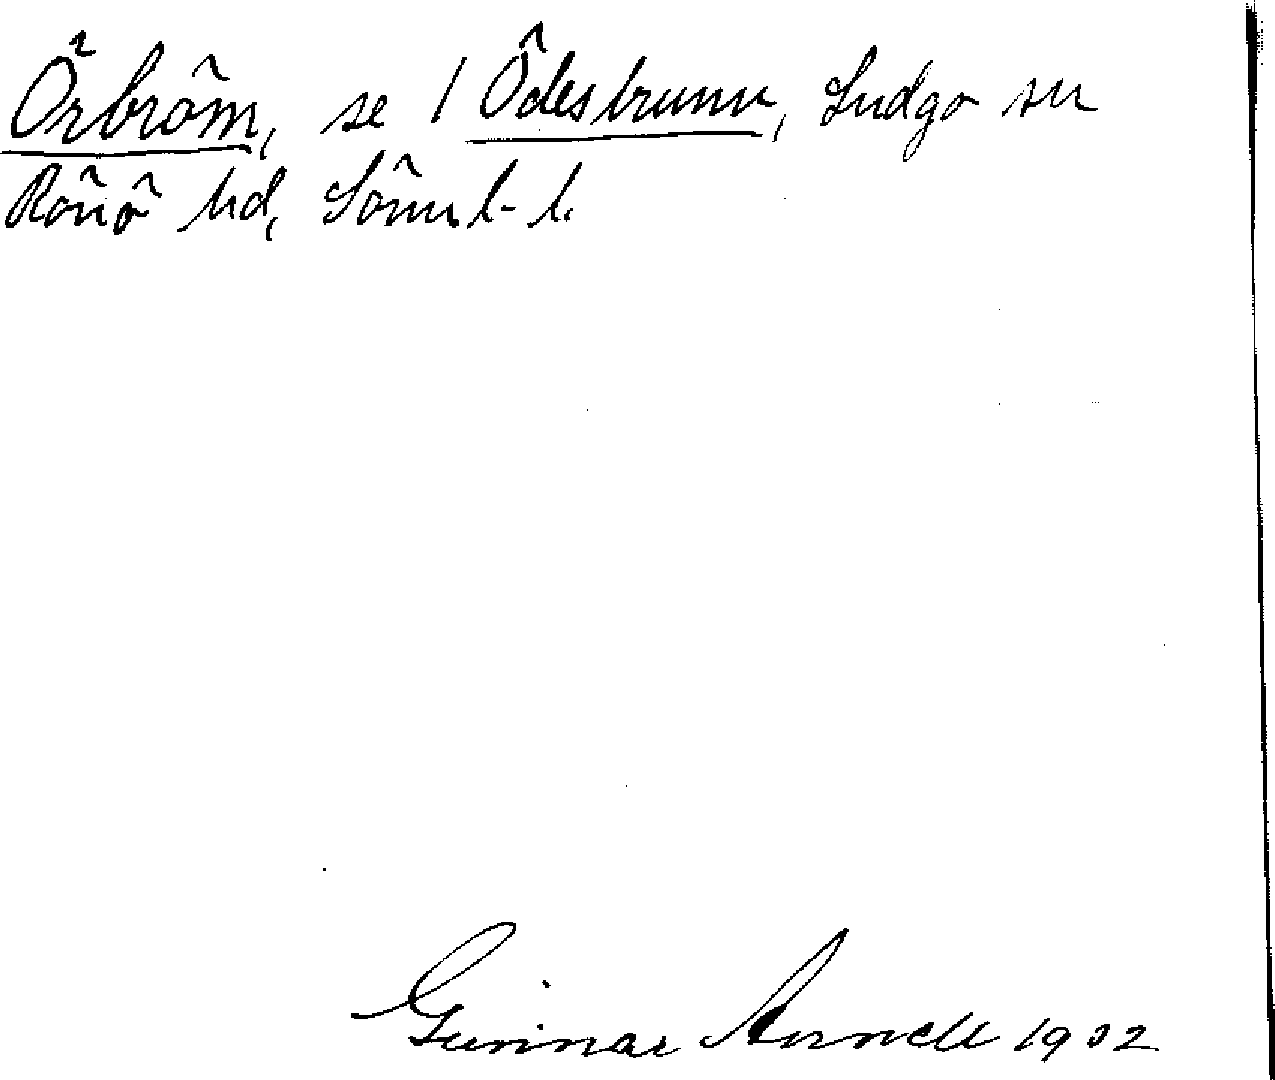 Örbröm, se / Ödesbrunn, Ludgo sn
Rönö hd, Söml. l.
Gunnar Arnell 1932